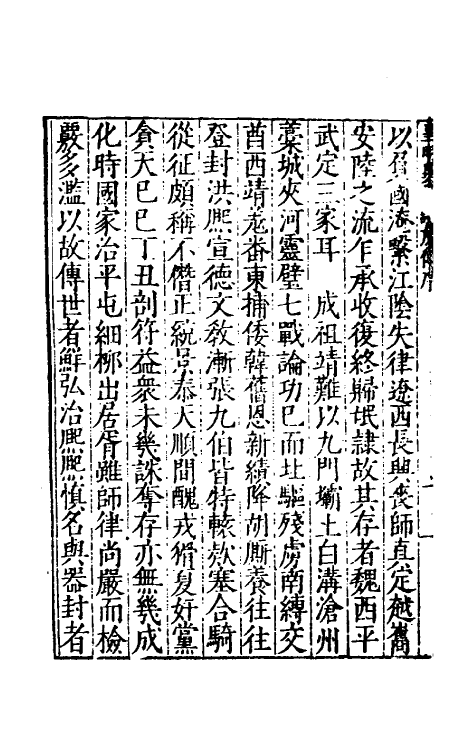 以負國添繫江陰失律遼西長興喪師真定越雋
安陸之流乍承收復終歸氓隸故其存者魏西平
武定三家耳　成祖靖難以九門壩上白溝滄州
藁城夾河靈璧七戰論功已而北驅殘虜南縛交
酋西靖羌番東捕倭韓舊恩新績降胡廝養往往
登封洪熙宣德文敎漸張九伯皆特轅欵塞合騎
從征頗稱不僭正統景泰天順間醜戎猾夏奸黨
貪天己巳丁丑剖符益衆未幾誅奪存亦無幾成
化時國家治平屯細柳出居胥雖師律尚嚴而檢
覈多濫以故傳世者鮮弘治熙熙慎名與器封者